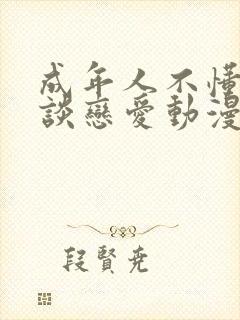 成年人不懂
談戀愛動漫
段賢尭